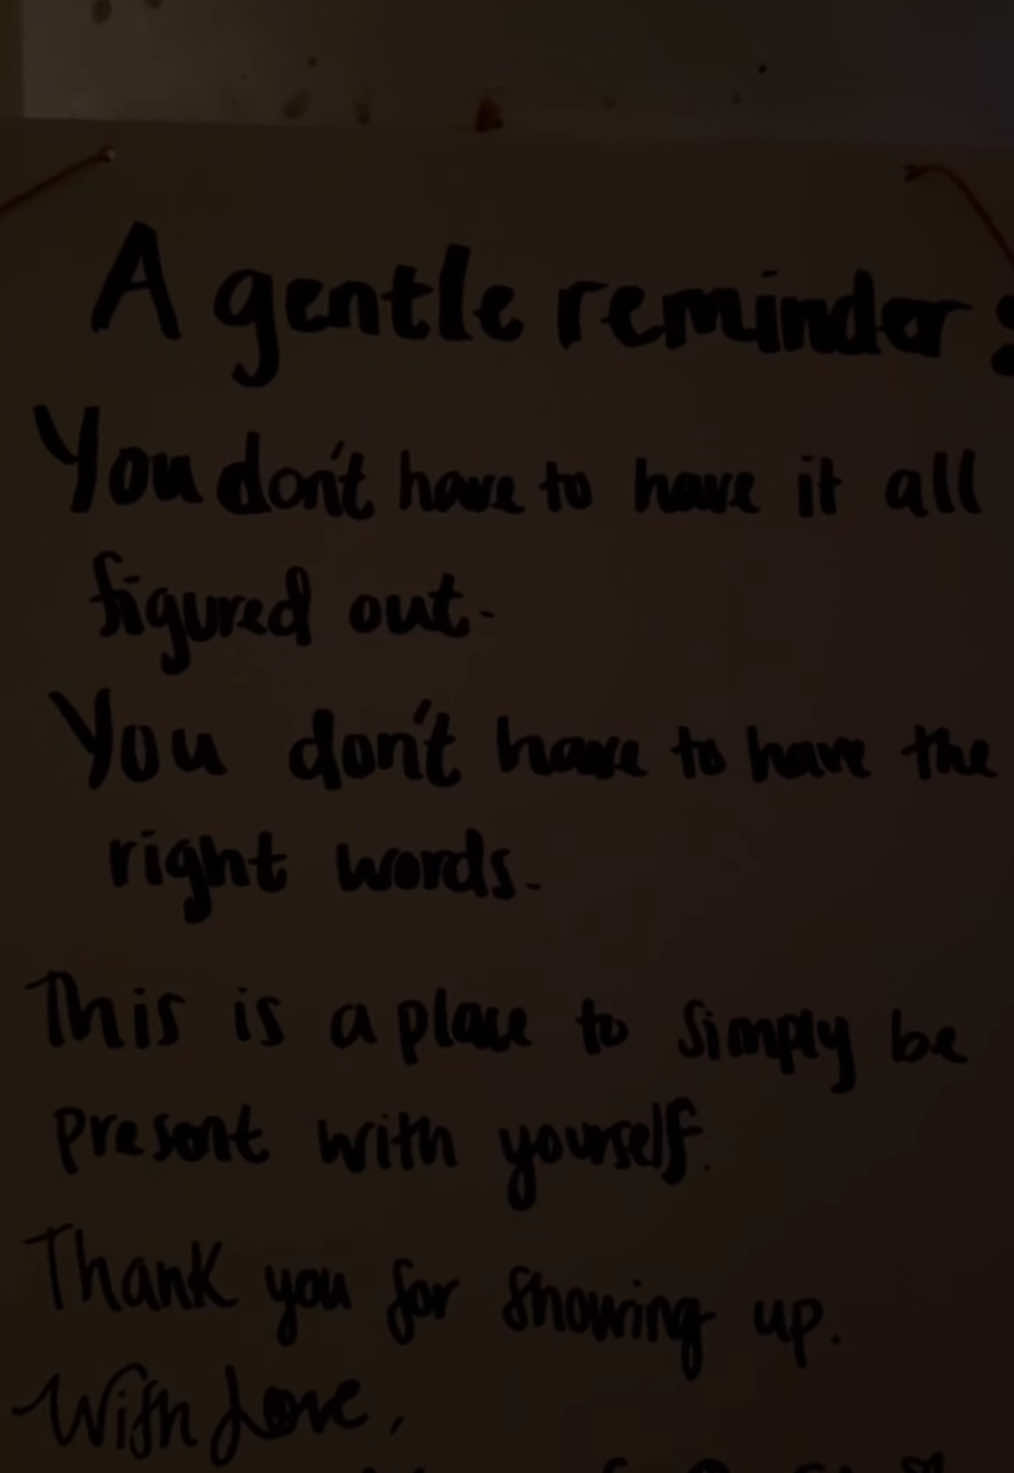 A gentle reminder:
You don't have to have it all
figured out.
You don't have to have the
right words.
This is a place to simply be
present with yourself.
Thank you for showing up.
With Love,